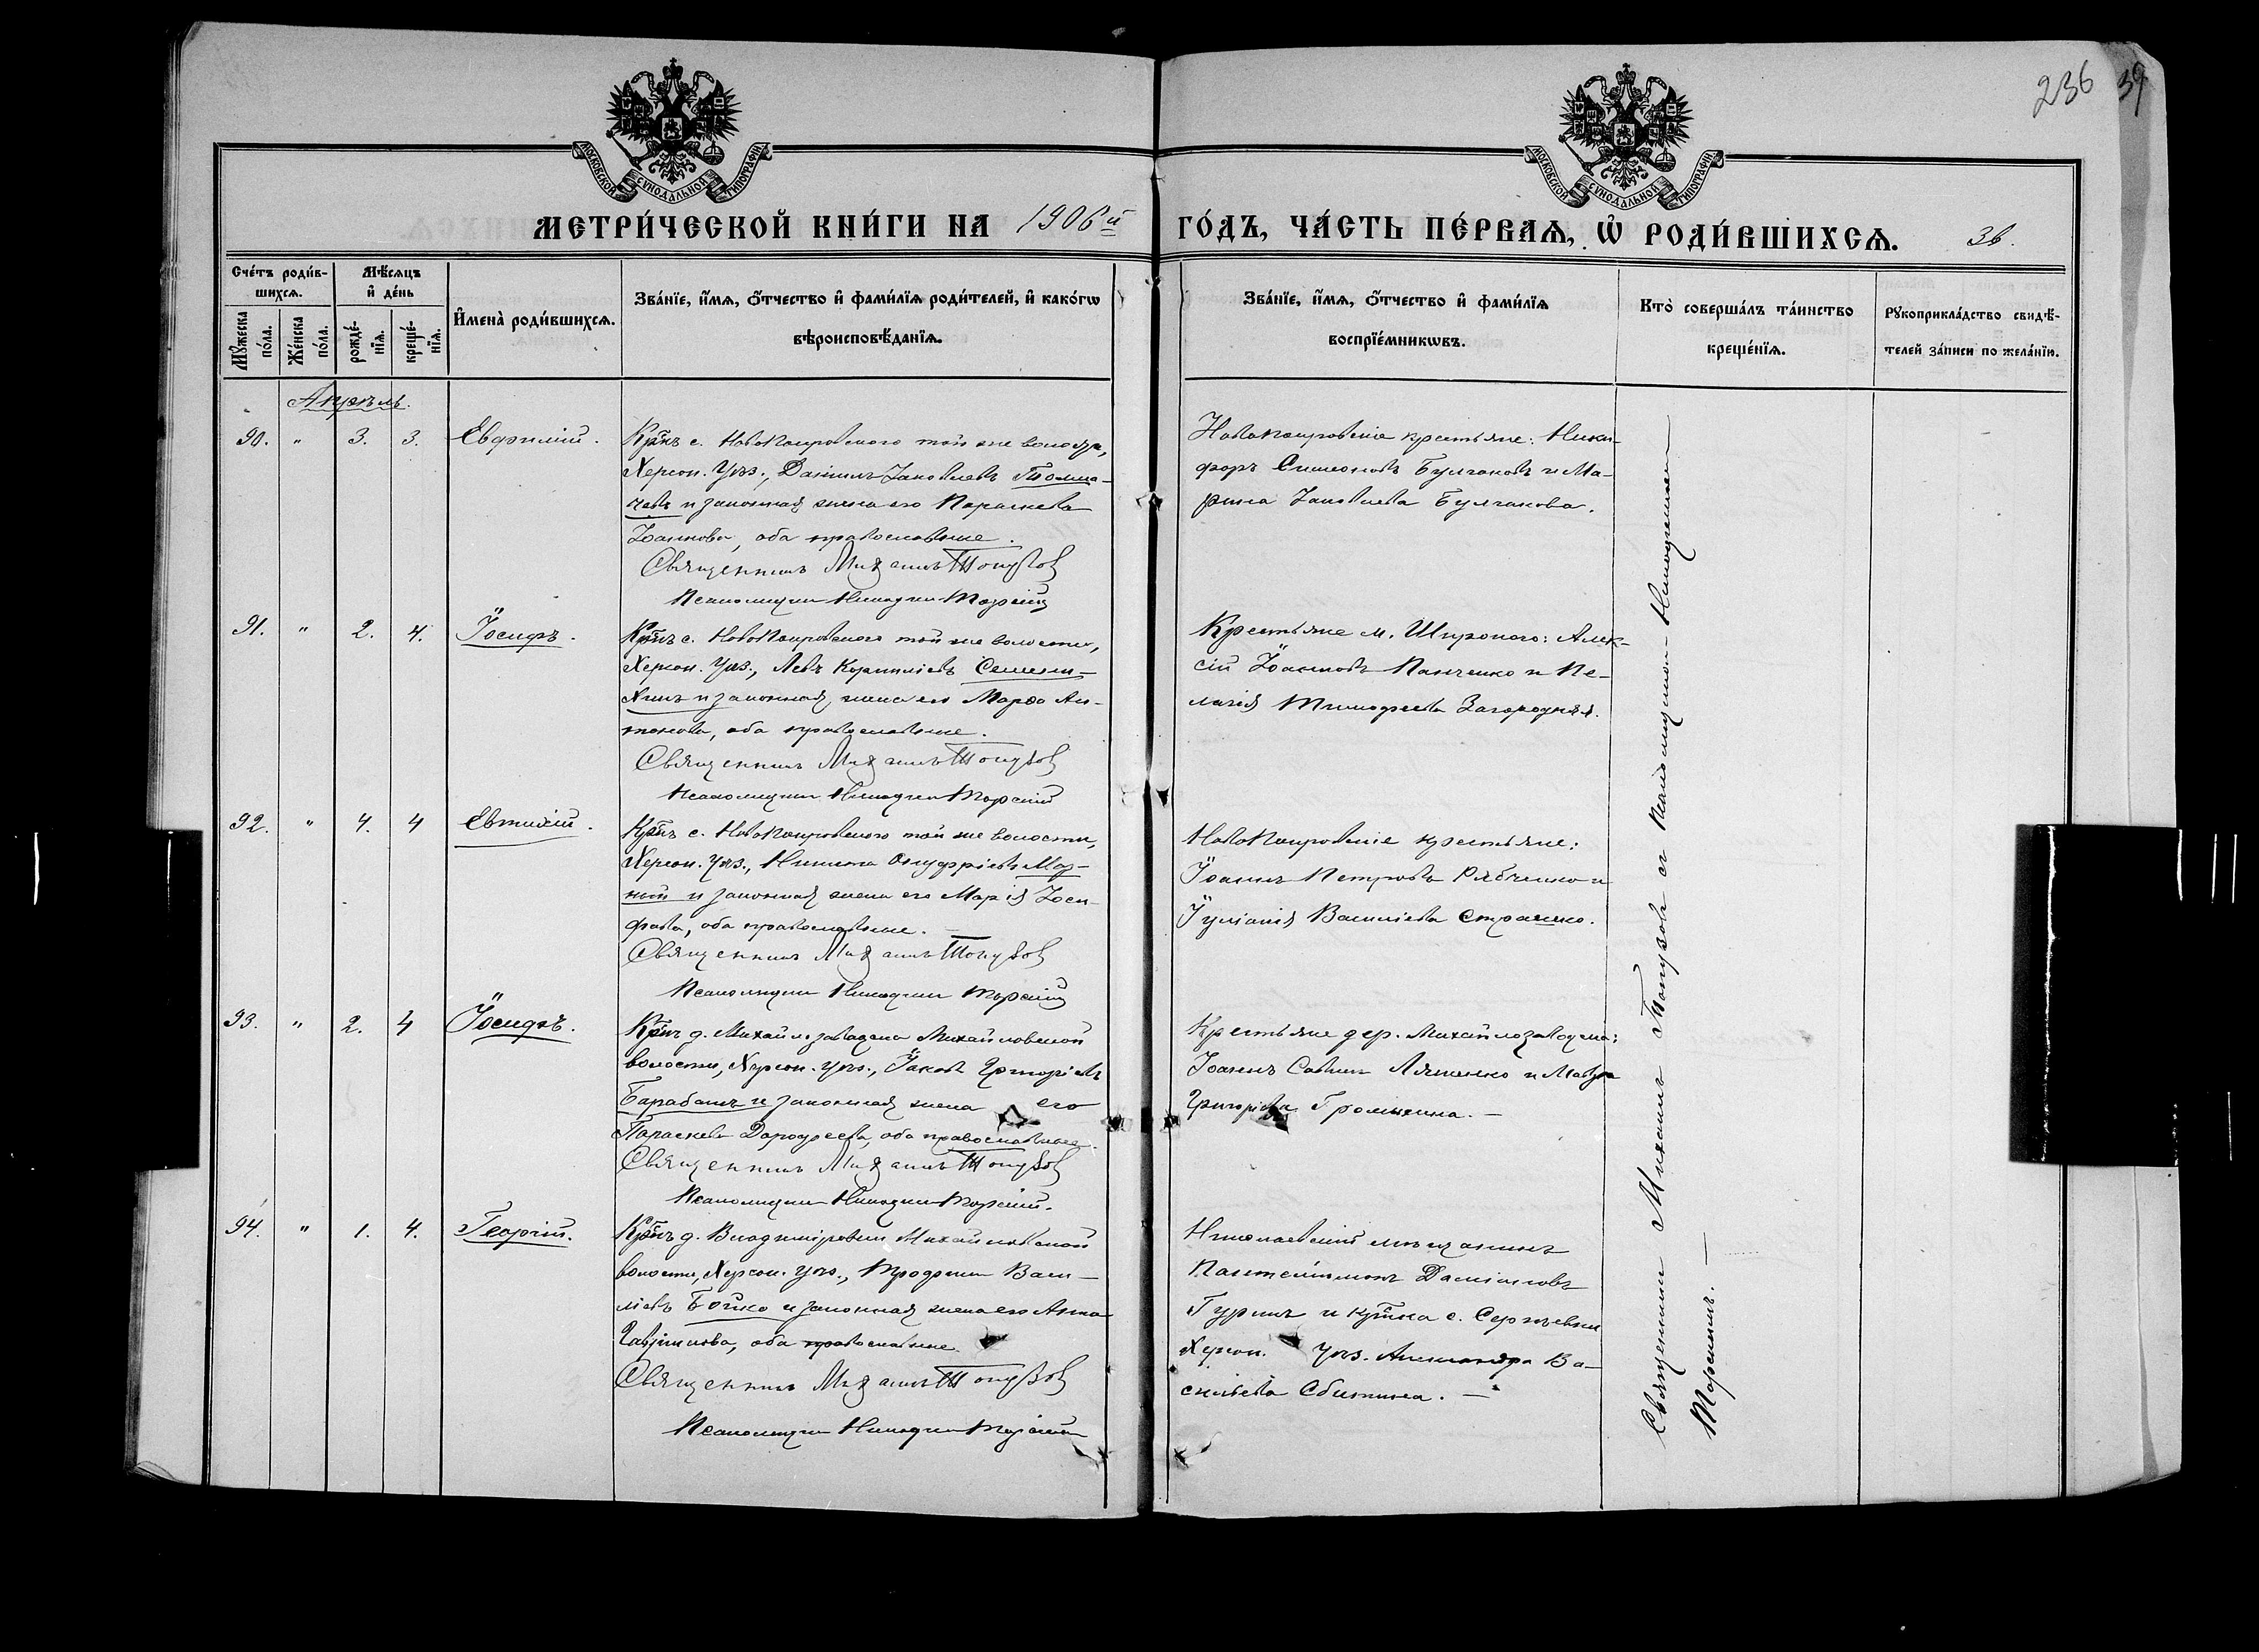 236 39
МОСКОВСКОЙ СУНОДАЛЬНОЙ ТИПОГРАФІИ
МОСКОВСКОЙ СУНОДАЛЬНОЙ ТИПОГРАФІИ
МЕТРИ́ЧЕСКОЙ КНИ́ГИ НА 1906й ГО́ДЪ, ЧА́СТЬ ПЕ́РВАѦ, Ѡ҆ РОДИ́ВШИХСѦ. 36.
Сче́тъ роди́в-
шихсѧ.
Мꙋ́жеска по́ла.
Же́нска по́ла.
Мѣ́сѧцъ
и҆ де́нь
рожде́-
нїѧ.
креще́-
нїѧ.
И҆мена̀ роди́вшихсѧ.
Зва́нїе, и҆́мѧ, ѻ҆́тчество и҆ фами́лїѧ роди́телей, и҆ како́гѡ
вѣроисповѣ́данїѧ.
Зва́нїе, и҆́мѧ, ѻ҆́тчество и҆ фами́лїѧ
воспрїе́мникѡвъ.
Кто̀ соверша́лъ та́инство
креще́нїѧ.
Рꙋкоприкла́дство свидѣ́-
телей за́писи по жела́нїю.
Апрѣль.
90. " 3. 3. Евфимій.
Кр-нъ с. НовоПокровскаго той же волости,
Херсон. Уѣз., Даніилъ Іаковлевъ Толма-
чевъ и законная жена его Параскева
Іоаннова, оба православные.
Священникъ Михаилъ Топузов
Псаломщикъ Никодим Торскій
Новопокровскіе крестьяне: Ники-
форъ Симеоновъ Булгаковъ и Ма-
рина Іаковлева Булгакова.
91. " 2. 4. Іосифъ.
Кр-нъ с. НовоПокровскаго той же волости,
Херсон. Уѣз., Левъ Корниліевъ
и законная жена его Марѳа Ан-
тонова, оба православные.
Священникъ Михаилъ Топузов
Псаломщикъ Никодим Торскій
Крестьяне м. Широкаго: Алек-
сій Іоанновъ Панченко и Пе-
лагія Тимофеева Загородняя.
92. " 4. 4 Евтихій.
Кр-нъ с. НовоПокровскаго той же волости,
Херсон. Уѣз., Никита Онуфріевъ
и законная жена его Марія Іоси-
фова, оба православные.
Священникъ Михаилъ Топузов
Псаломщикъ Никодим Торскій
НовоПокровскіе крестьяне:
Іоаннъ Петровъ Рябченко и
Іуліанія Василіева Страшко.
93. " 2. 4 Іосифъ.
Кр-нъ д. Михайлозаводска Михайловской
волости, Херсон. уѣз., Іаковъ Григоріевъ
Барабашъ и законная жена его
Параскева Дорофеева, оба православные.
Священникъ Михаилъ Топузов
Псаломщикъ Никодим Торскій.
Крестьяне дер. Михайлозаводска:
Іоаннъ Саввин Ляшенко и Мавра
Григоріева Громыхина. —
94. " 1. 4. Георгій.
Кр-нъ д. Владиміровки Михайловской
волости, Херсон. уѣз., Трофим Васи-
ліевъ Бойко и законная жена его Анна
Гавріилова, оба православные.
Священникъ Михаилъ Топузов
Псаломщикъ Никодим Торскій
Николаевскій мѣщанинъ
Пантелеимонъ Даміановъ
Гуринъ и кр-нка с. Сергѣевки
Херсон. Уѣз. Александра Ва-
сильева Сбитнева. —
Священникъ Михаилъ Топузовъ съ псаломщикомъ Никодимомъ
Торскимъ. —